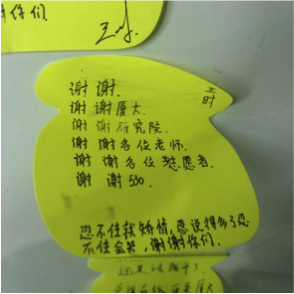 谢你们
谢谢.
谢谢厦大.
谢谢研究院.
谢谢各位老师.
谢谢各位志愿者.
谢谢530.
忍不住我矫情,怕说得多了忍
不住会哭,谢谢你们.